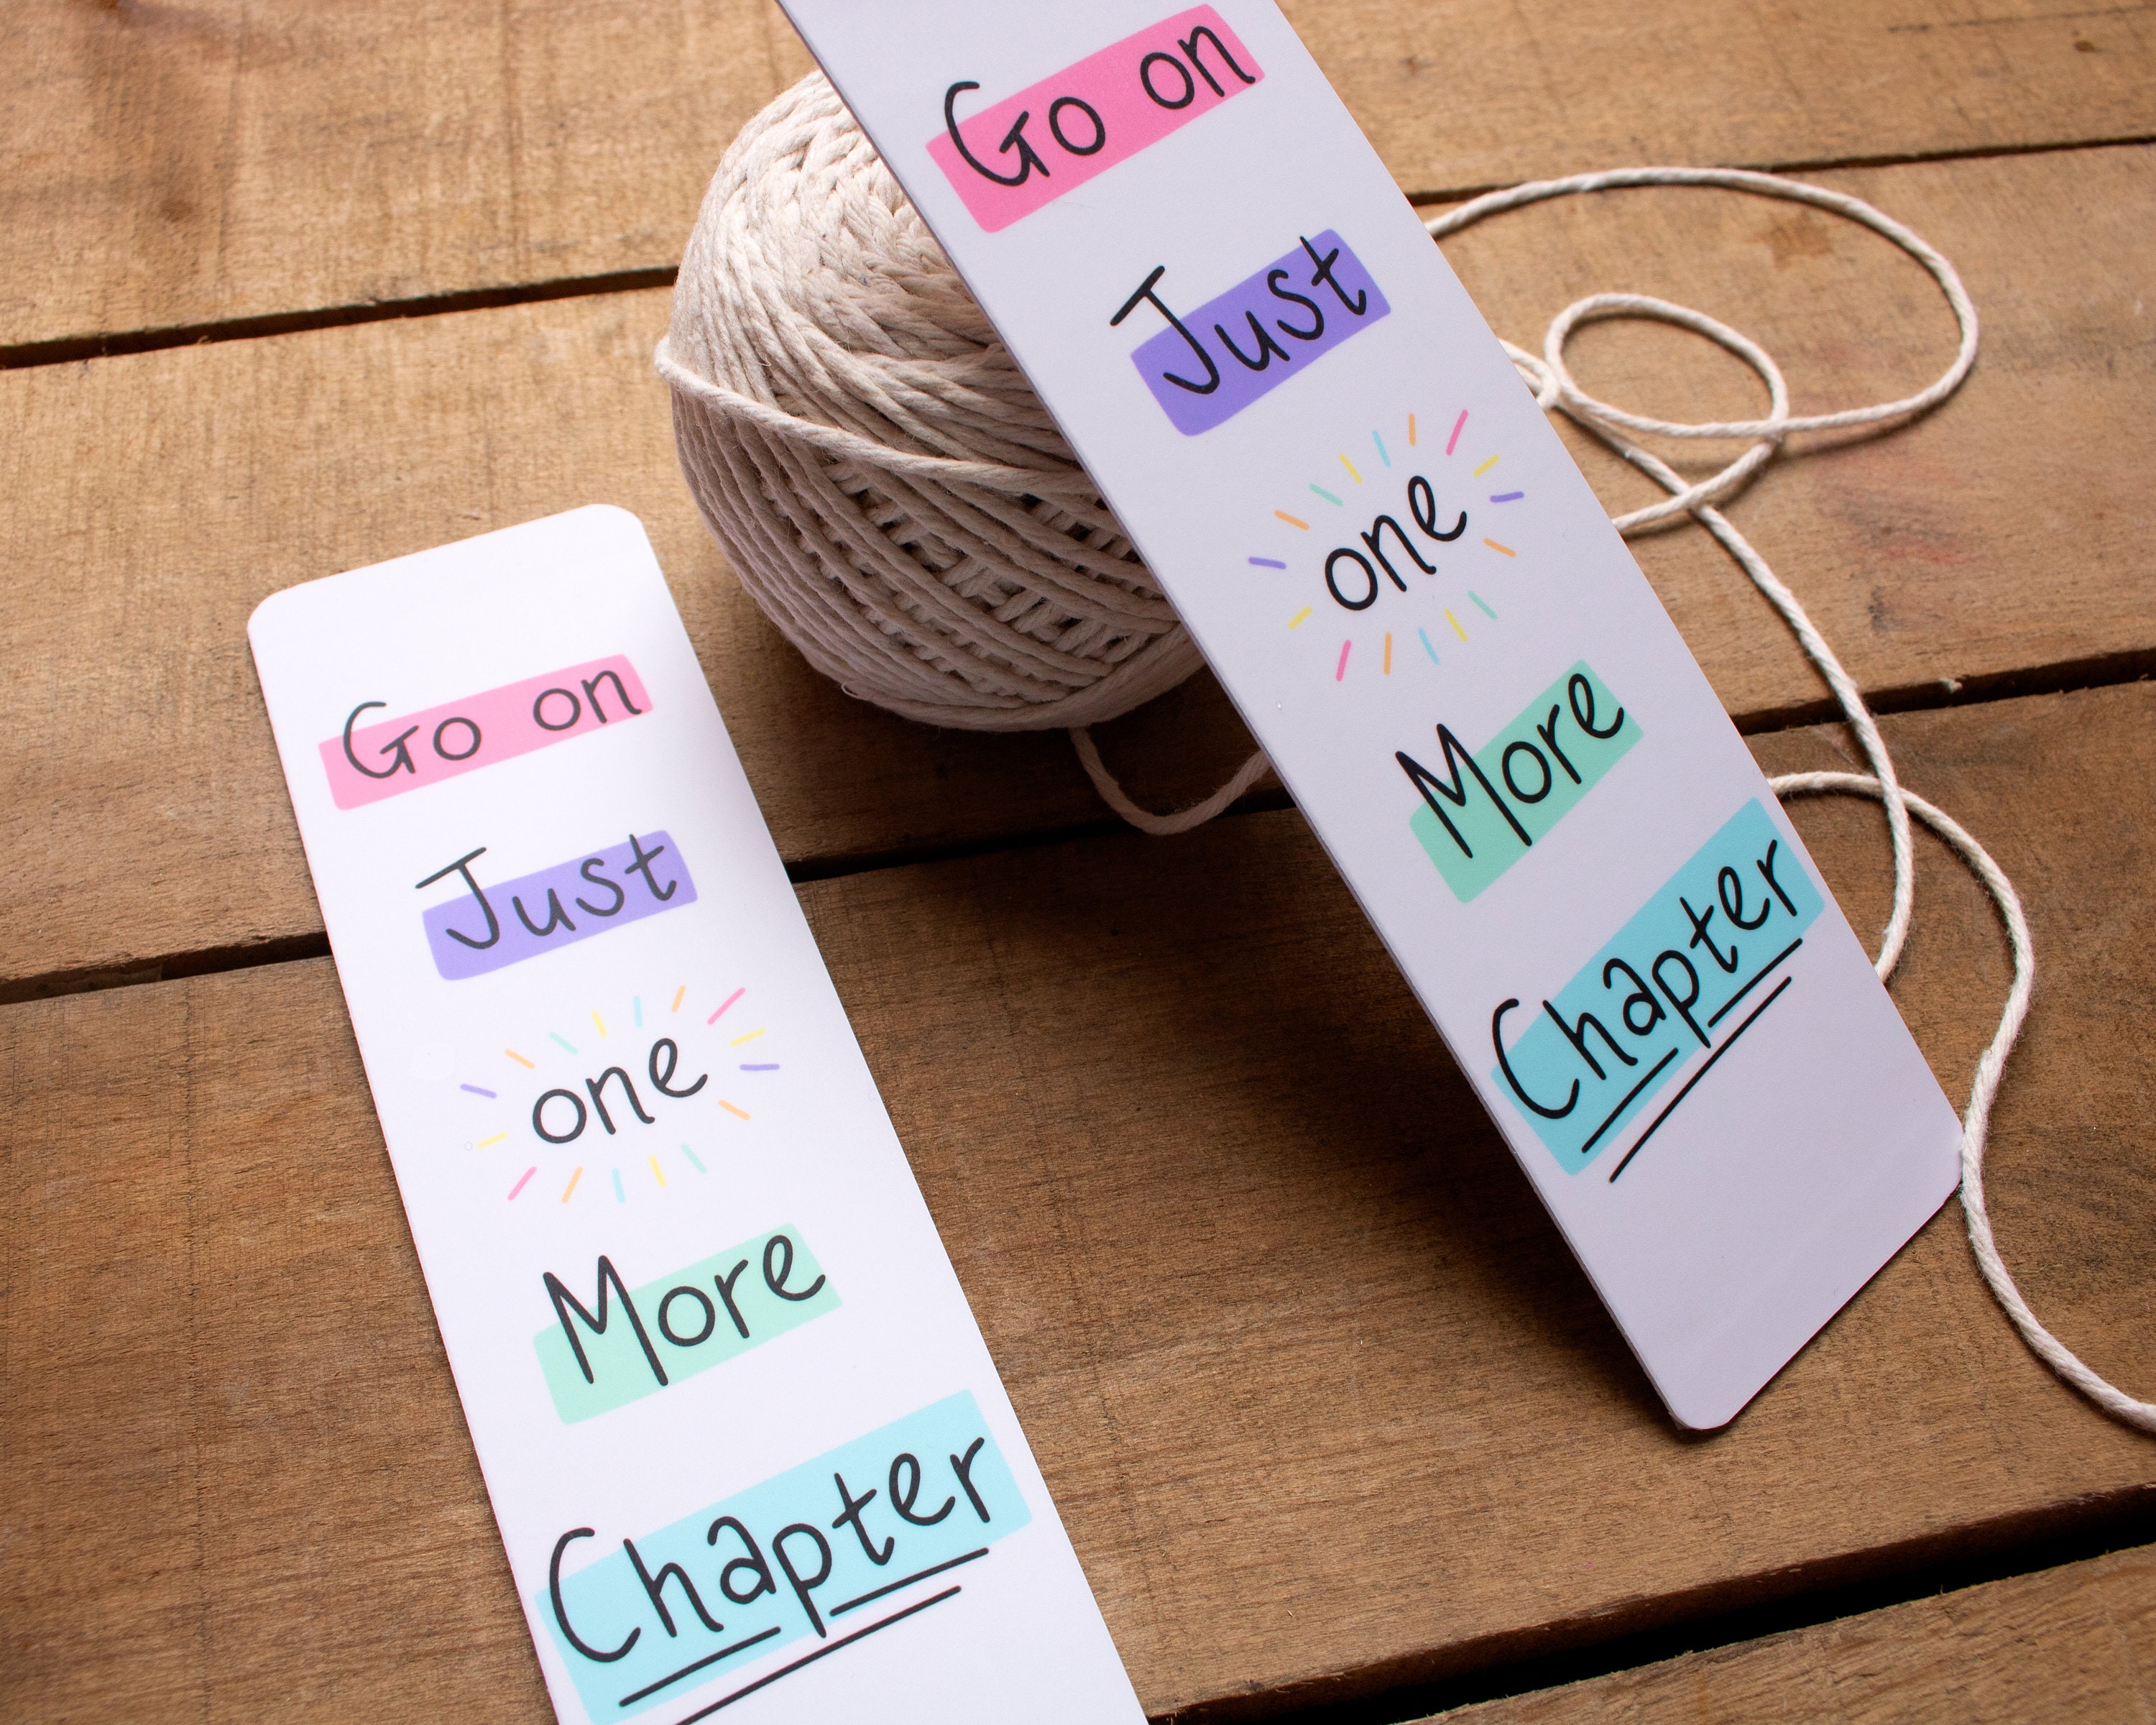 Go on
Just
one
More
Chapter
Go on
Just
one
More
Chapter